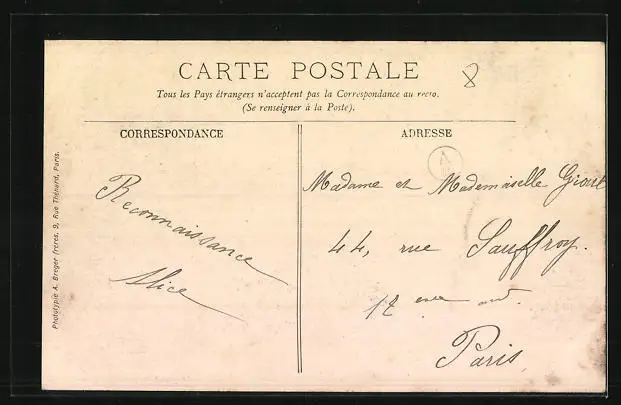 CARTE POSTALE
8
Tous les Pays étrangers n'acceptent pas la Correspondance au recto.
(Se renseigner à la Poste).
CORRESPONDANCE
ADRESSE
Reconnaissance
Alice
Madame et Mademoiselle
44, rue Sauffroy.
17 eme
Paris
Phototypie A. Breger frères, 9, Rue Thénard, Paris.